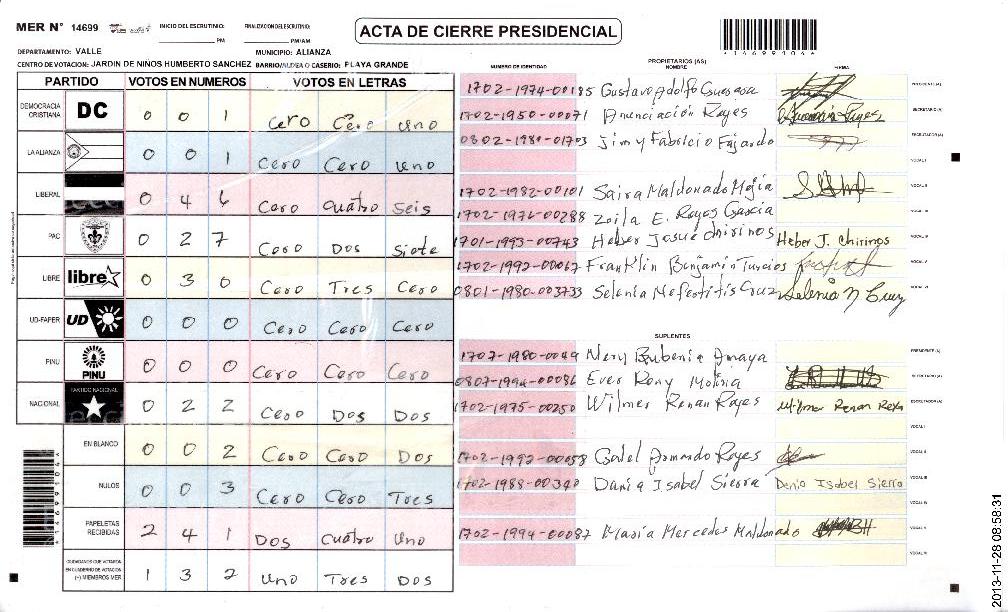 MER N° 14699 INICIO DEL ESCRUTINIO: PM FINALIZACION DEL ESCRUTINIO: PM/AM
ACTA DE CIERRE PRESIDENCIAL
DEPARTAMENTO: VALLE MUNICIPIO: ALIANZA
CENTRO DE VOTACION: JARDIN DE NIÑOS HUMBERTO SANCHEZ BARRIO/ALDEA O CASERIO: PLAYA GRANDE
PARTIDO VOTOS EN NUMEROS VOTOS EN LETRAS
DEMOCRACIA CRISTIANA DC 0 0 1 Cero Cero uno
LA ALIANZA 0 0 1 Cero Cero uno
LIBERAL 0 4 6 Cero cuatro seis
PAC 0 2 7 Cero Dos siete
LIBRE libre 0 3 0 Cero Tres Cero
UD-FAPER UD 0 0 0 Cero Cero Cero
PINU PINU 0 0 0 Cero Cero Cero
NACIONAL PARTIDO NACIONAL 0 2 2 Cero Dos Dos
EN BLANCO 0 0 2 Cero Cero Dos
NULOS 0 0 3 Cero Cero Tres
PAPELETAS RECIBIDAS 2 4 1 Dos cuatro uno
CIUDADANOS QUE VOTARON EN CUADERNO DE VOTACION (+) MIEMBROS MER 1 3 2 uno Tres Dos
PROPIETARIOS (AS)
NUMERO DE IDENTIDAD NOMBRE FIRMA
1702-1974-00185 Gustavo Adolfo PRESIDENTE (A)
1702-1950-00071 Anunciación Reyes SECRETARIO (A)
0802-1980-01703 Jimy Fabricio Fajardo ESCRUTADOR (A)
VOCAL I
1702-1982-00101 Saira Maldonado Mejia VOCAL II
1702-1976-00288 Zoila E. Reyes Garcia VOCAL III
1701-1993-00743 Heber Josue Chirinos Heber J. Chirinos VOCAL IV
1702-1992-00067 Franklin Benjamin Turcios VOCAL V
0801-1980-03733 Selenia Nefertitis Cruz Selenia N Cruz VOCAL VI
SUPLENTES
1707-1980-0049 Nery Rubenia Amaya PRESIDENTE (A)
0807-1994-00086 Ever Rony Molina SECRETARIO (A)
1702-1975-00250 Wilmer Renan Reyes Wilmer Renan Reyes ESCRUTADOR (A)
VOCAL I
1702-1992-00058 Armando Reyes VOCAL II
1702-1988-00340 Dania Isabel Sierra Denia Isabel Sierra VOCAL III
VOCAL IV
1702-1994-00087 Maria Mercedes Maldonado VOCAL V
VOCAL VI
2013-11-28 08:58:31